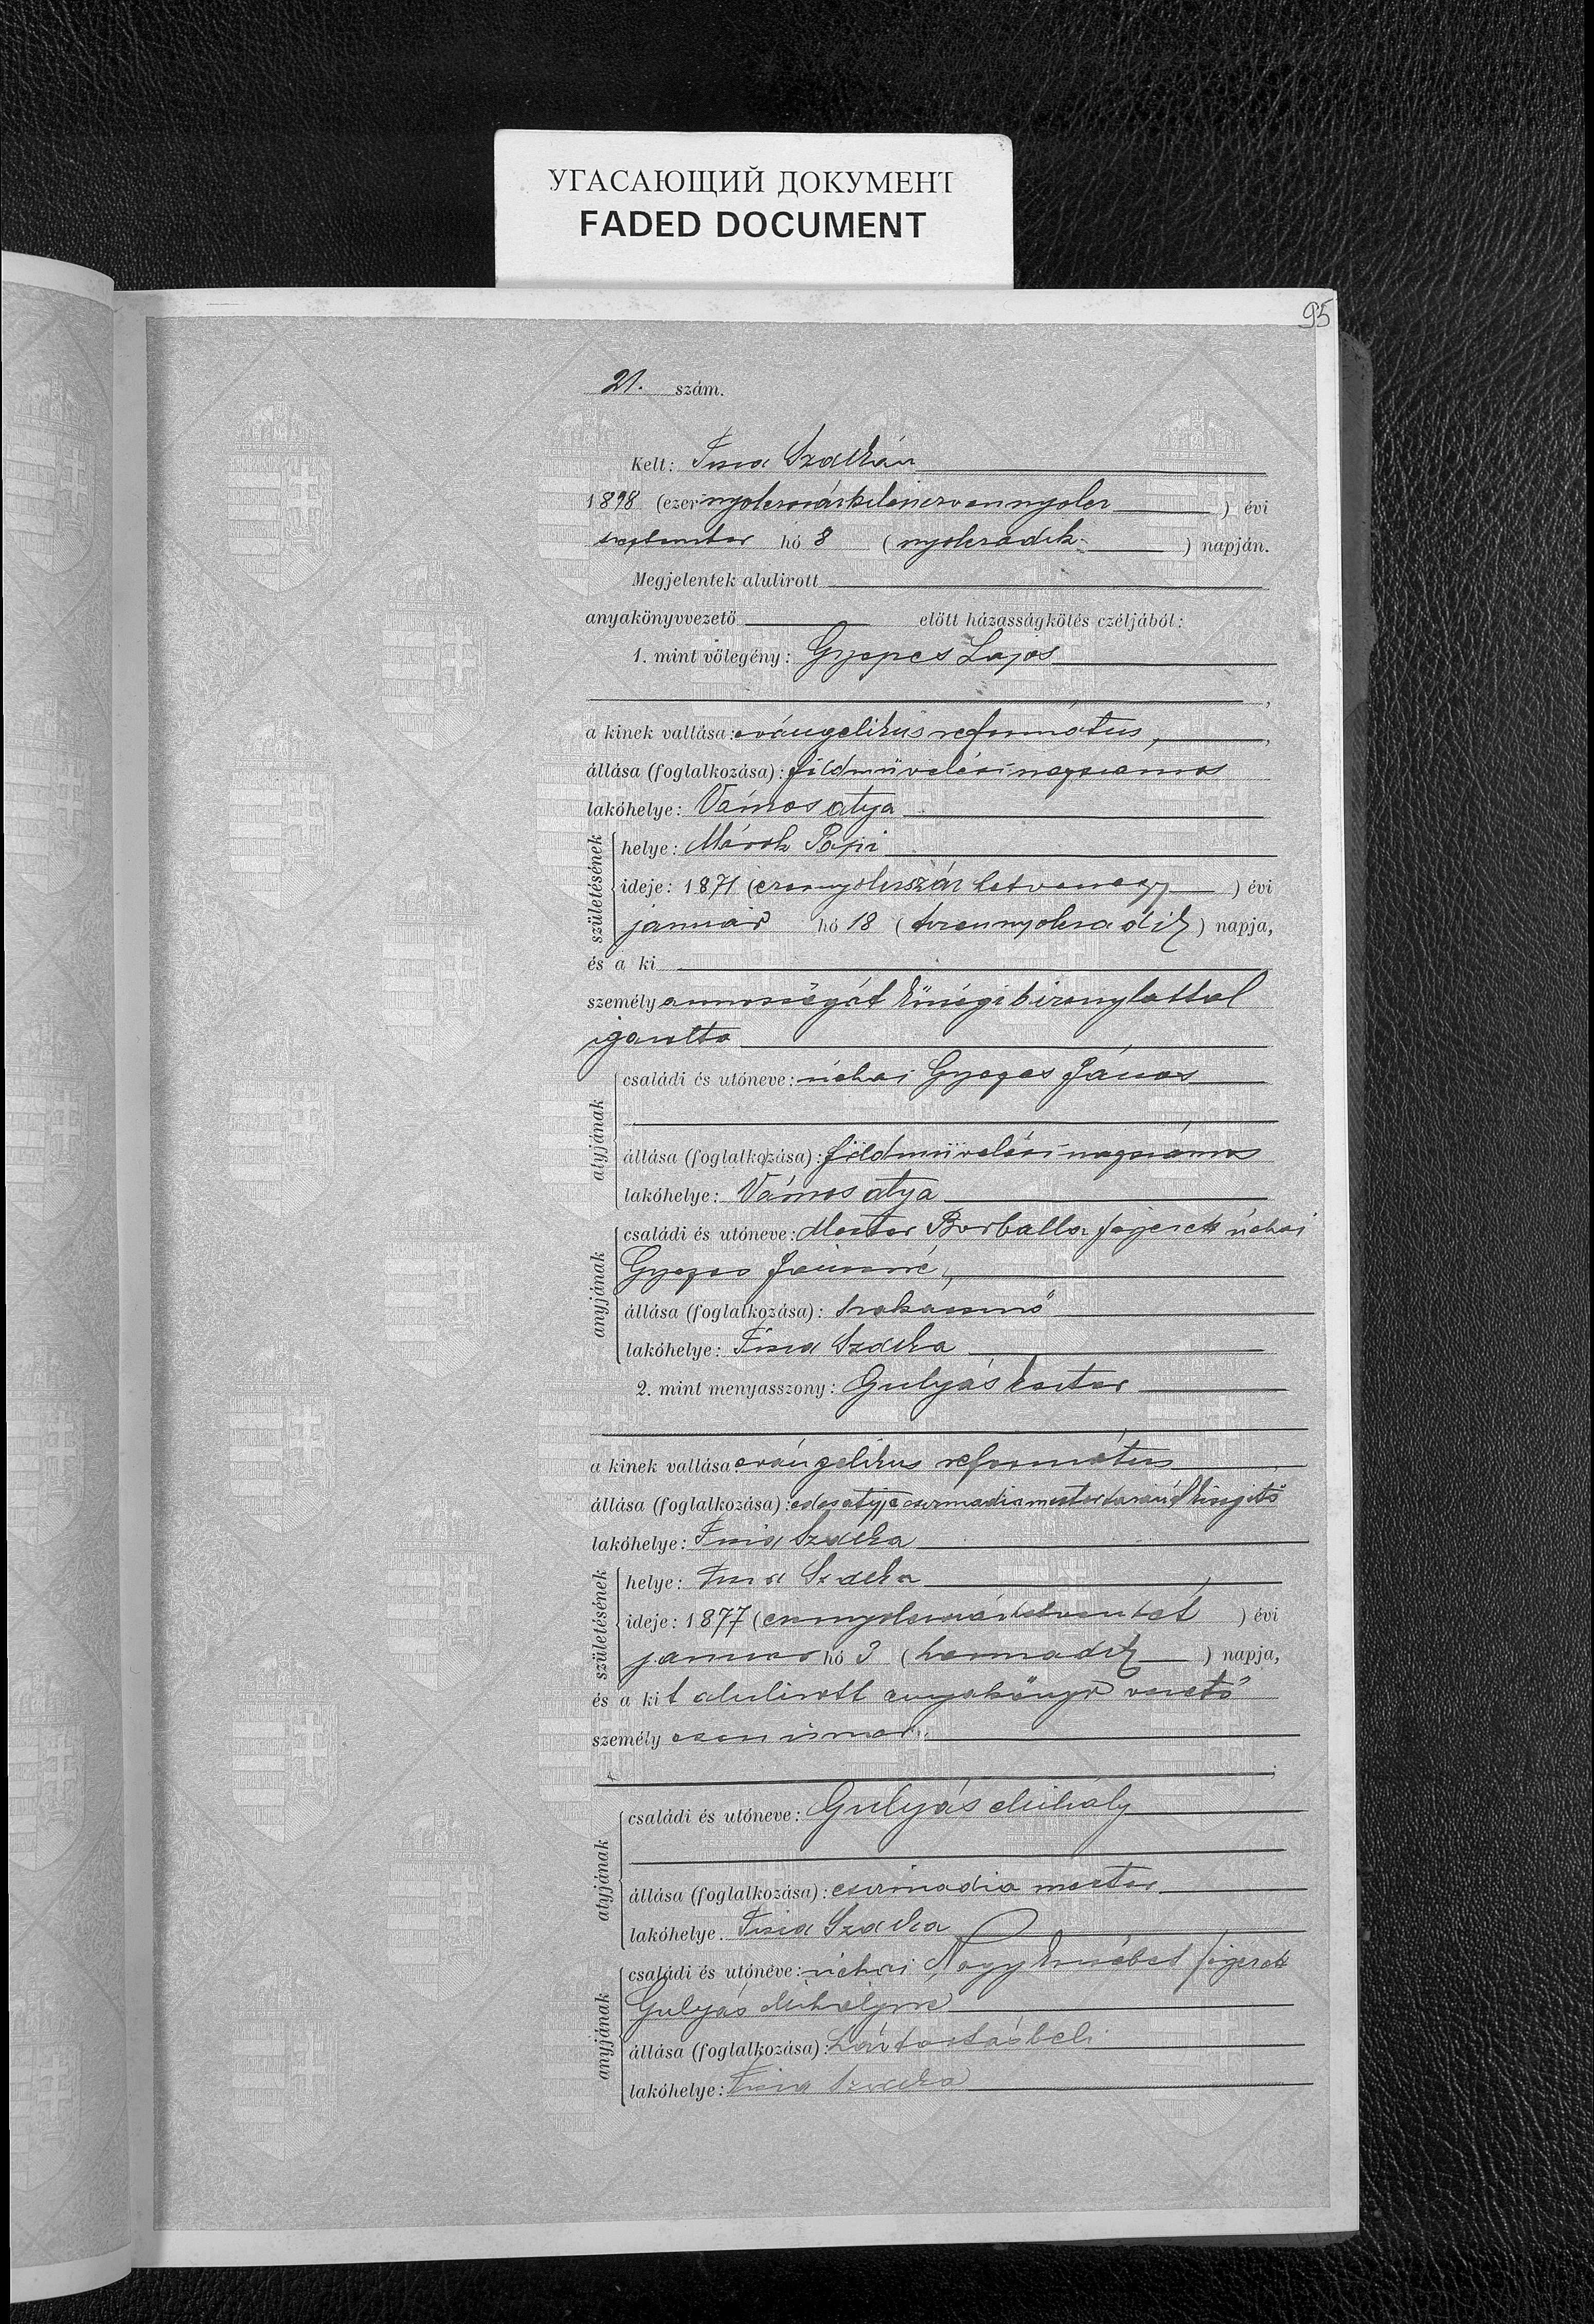 УГАСАЮЩИЙ ДОКУМЕНТ
FADED DOCUMENT
95
21. szám.
Kelt: Tisza Szalkán
1898 (ezernyolczszázkilenczvennyolcz) évi
szeptember hó 8 (nyolczadik) napján.
Megjelentek alulirott
anyakönyvvezető előtt házasságkötés czéljából:
1. mint vőlegény: Gyepes Lajos
,
a kinek vallása: evángelikus református,
állása (foglalkozása): földmüvelési napszámos
lakóhelye: Vámos atya
születésének
helye: Márok Papi
ideje: 1871 (ezernyolczszáz hetvenegy) évi
január hó 18 (tizennyolczadik) napja,
és a ki
személyazonosságát községi bizonylattal
igazolta
atyjának
családi és utóneve: néhai Gyepes János
állása (foglalkozása): földmüvelési napszámos
lakóhelye: Vámos atya
anyjának
családi és utóneve: Mester Borballa férjezett néhai
Gyepes Jánosné,
állása (foglalkozása): szakácsnő
lakóhelye: Tisza Szalka
2. mint menyasszony: Gulyás Eszter
a kinek vallása: evángelikus református
állása (foglalkozása): édes atyja csizmadia mester kisegitő
lakóhelye: Tisza Szalka
születésének
helye: Tisza Szalka
ideje: 1877 (ezernyolczszázhetvenhét) évi
január hó 3 (harmadik) napja,
és a kit alulirott anyakönyv vezető
személyesen ismer.
atyjának
családi és utóneve: Gulyás Mihály
állása (foglalkozása): csizmadia mester
lakóhelye. Tisza Szalka
anyjának
családi és utóneve: néhai Nagy Erzsébet férjezett
Gulyás Mihályné
állása (foglalkozása): háztartásbeli
lakóhelye: Tisza Szalka